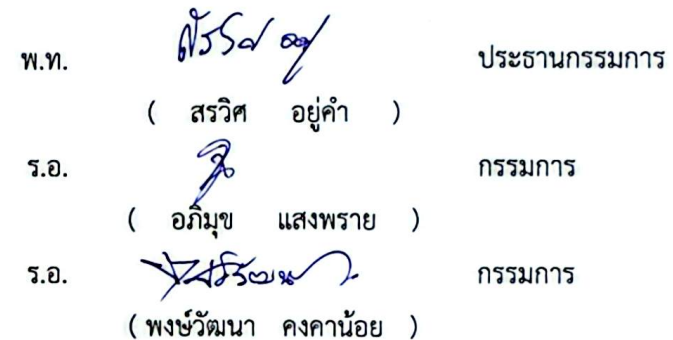 พ.ท. ประธานกรรมการ
( สรวิศ อยู่คำ )
ร.อ. กรรมการ
( อภิมุข แสงพราย )
ร.อ. กรรมการ
( พงษ์วัฒนา คงคาน้อย )